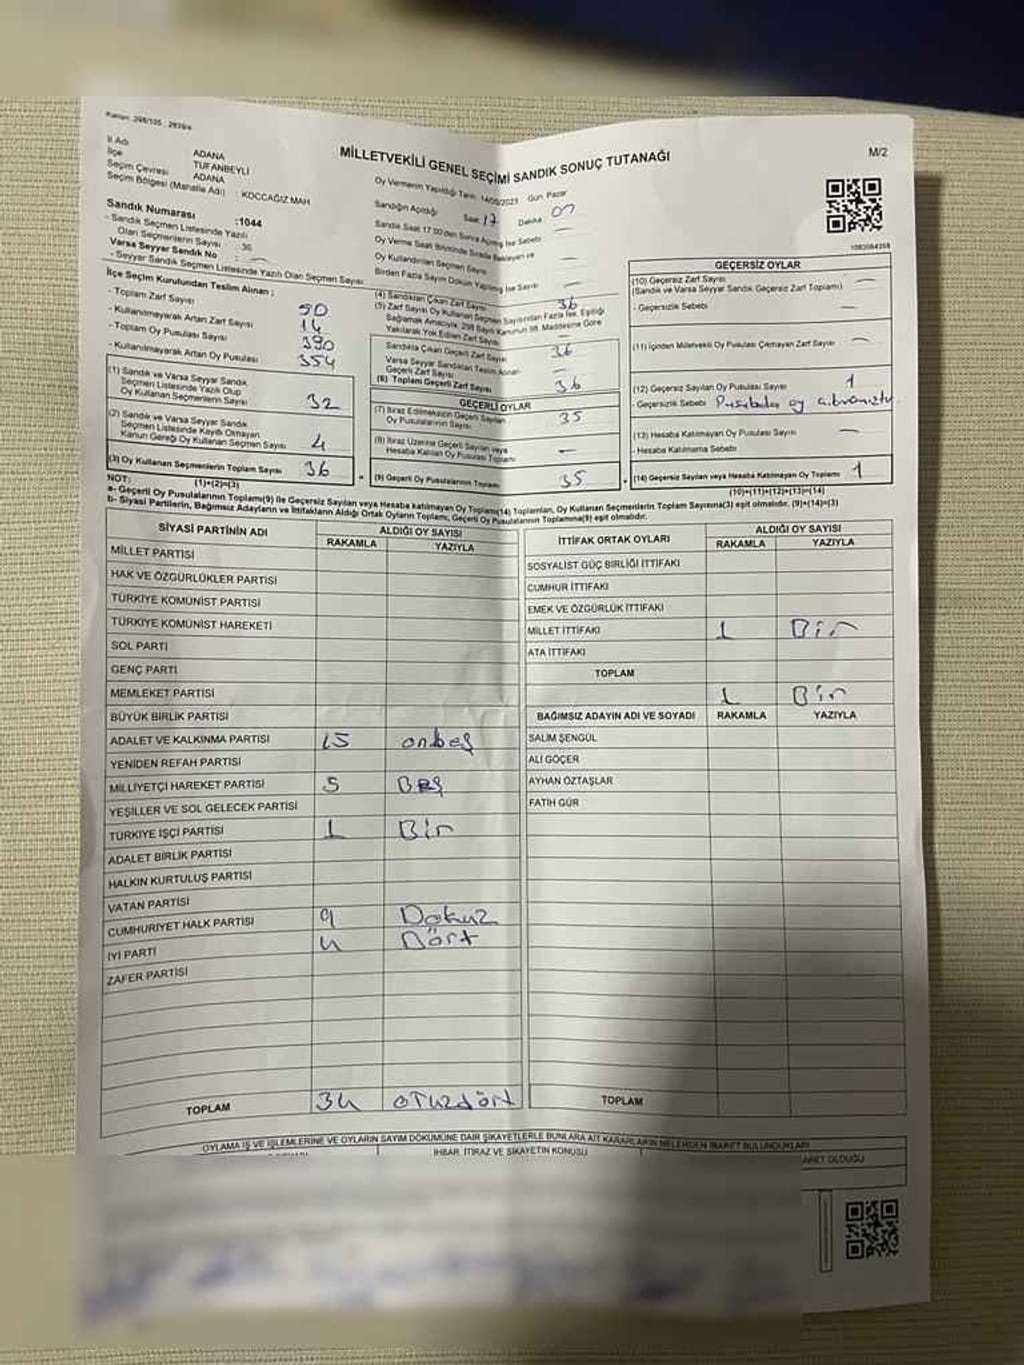 Kanun: 298/105 : 2839/4
MİLLETVEKİLİ GENEL SEÇİMİ SANDIK SONUÇ TUTANAĞI
M/2
İl Adı ADANA
İlçe TUFANBEYLİ
Seçim Çevresi ADANA
Seçim Bölgesi (Mahalle Adı) : KOCCAĞIZ MAH
Sandık Numarası :1044
- Sandık Seçmen Listesinde Yazılı
Olan Seçmenlerin Sayısı : 36
Varsa Seyyar Sandık No
- Seyyar Sandık Seçmen Listesinde Yazılı Olan Seçmen Sayısı
Oy Vermenin Yapıldığı Tarih: 14/05/2023 Gün: Pazar
Sandığın Açıldığı Saat: 17 Dakika: 07
Sandık Saat 17.00'den Sonra Açılmış İse Sebebi
Oy Verme Saati Bitiminde Sırada Bekleyen ve
Oy Kullandırılan Seçmen Sayısı
Birden Fazla Sayım Döküm Yapılmış İse Sayısı
1083084358
İlçe Seçim Kurulundan Teslim Alınan :
- Toplam Zarf Sayısı 50
- Kullanılmayarak Artan Zarf Sayısı 14
- Toplam Oy Pusulası Sayısı 390
- Kullanılmayarak Artan Oy Pusulası 354
(1) Sandık ve Varsa Seyyar Sandık
Seçmen Listesinde Yazılı Olup
Oy Kullanan Seçmenlerin Sayısı 32
(2) Sandık ve Varsa Seyyar Sandık
Seçmen Listesinde Kayıtlı Olmayan
Kanun Gereği Oy Kullanan Seçmen Sayısı 4
(3) Oy Kullanan Seçmenlerin Toplam Sayısı 36
(1)+(2)=(3)
(4) Sandıktan Çıkan Zarf Sayısı 36
(5) Zarf Sayısı Oy Kullanan Seçmen Sayısından Fazla İse, Eşitliği
Sağlamak Amacıyla, 298 Sayılı Kanunun 98. Maddesine Göre
Yakılarak Yok Edilen Zarf Sayısı
Sandıkta Çıkan Geçerli Zarf Sayısı 36
Varsa Seyyar Sandıktan Teslim Alınan
Geçerli Zarf Sayısı
(6) Toplam Geçerli Zarf Sayısı 36
GEÇERLİ OYLAR
(7) İtiraz Edilmeksizin Geçerli Sayılan
Oy Pusulalarının Sayısı 35
(8) İtiraz Üzerine Geçerli Sayılan veya
Hesaba Katılan Oy Pusulası Toplamı
(9) Geçerli Oy Pusulalarının Toplamı 35
GEÇERSİZ OYLAR
(10) Geçersiz Zarf Sayısı
(Sandık ve Varsa Seyyar Sandık Geçersiz Zarf Toplamı)
- Geçersizlik Sebebi
(11) İçinden Milletvekili Oy Pusulası Çıkmayan Zarf Sayısı
(12) Geçersiz Sayılan Oy Pusulası Sayısı 1
- Geçersizlik Sebebi oy
(13) Hesaba Katılmayan Oy Pusulası Sayısı
- Hesaba Katılmama Sebebi
(14) Geçersiz Sayılan veya Hesaba Katılmayan Oy Toplamı 1
(10)+(11)+(12)+(13)=(14)
NOT:
a- Geçerli Oy Pusulalarının Toplamı(9) ile Geçersiz Sayılan veya Hesaba katılmayan Oy Toplamı(14) Toplamları, Oy Kullanan Seçmenlerin Toplam Sayısına(3) eşit olmalıdır. (9)+(14)=(3)
b- Siyasi Partilerin, Bağımsız Adayların ve İttifakların Aldığı Ortak Oyların Toplamı, Geçerli Oy Pusulalarının Toplamına(9) eşit olmalıdır.
SİYASİ PARTİNİN ADI ALDIĞI OY SAYISI
RAKAMLA YAZIYLA
MİLLET PARTİSİ
HAK VE ÖZGÜRLÜKLER PARTİSİ
TÜRKİYE KOMÜNİST PARTİSİ
TÜRKİYE KOMÜNİST HAREKETİ
SOL PARTİ
GENÇ PARTİ
MEMLEKET PARTİSİ
BÜYÜK BİRLİK PARTİSİ
ADALET VE KALKINMA PARTİSİ 15 onbeş
YENİDEN REFAH PARTİSİ
MİLLİYETÇİ HAREKET PARTİSİ 5 Beş
YEŞİLLER VE SOL GELECEK PARTİSİ
TÜRKİYE İŞÇİ PARTİSİ 1 Bir
ADALET BİRLİK PARTİSİ
HALKIN KURTULUŞ PARTİSİ
VATAN PARTİSİ
CUMHURİYET HALK PARTİSİ 9 Dokuz
İYİ PARTİ 4 Dört
ZAFER PARTİSİ
TOPLAM 34 otuzdört
İTTİFAK ORTAK OYLARI ALDIĞI OY SAYISI
RAKAMLA YAZIYLA
SOSYALİST GÜÇ BİRLİĞİ İTTİFAKI
CUMHUR İTTİFAKI
EMEK VE ÖZGÜRLÜK İTTİFAKI
MİLLET İTTİFAKI 1 Bir
ATA İTTİFAKI
TOPLAM 1 Bir
BAĞIMSIZ ADAYIN ADI VE SOYADI RAKAMLA YAZIYLA
SALİM ŞENGÜL
ALİ GÖÇER
AYHAN ÖZTAŞLAR
FATİH GÜR
TOPLAM
OYLAMA İŞ VE İŞLEMLERİNE VE OYLARIN SAYIM DÖKÜMÜNE DAİR ŞİKAYETLERLE BUNLARA AİT KARARLARIN NELERDEN İBARET BULUNDUKLARI
İHBAR, İTİRAZ VE ŞİKAYETİN KONUSU